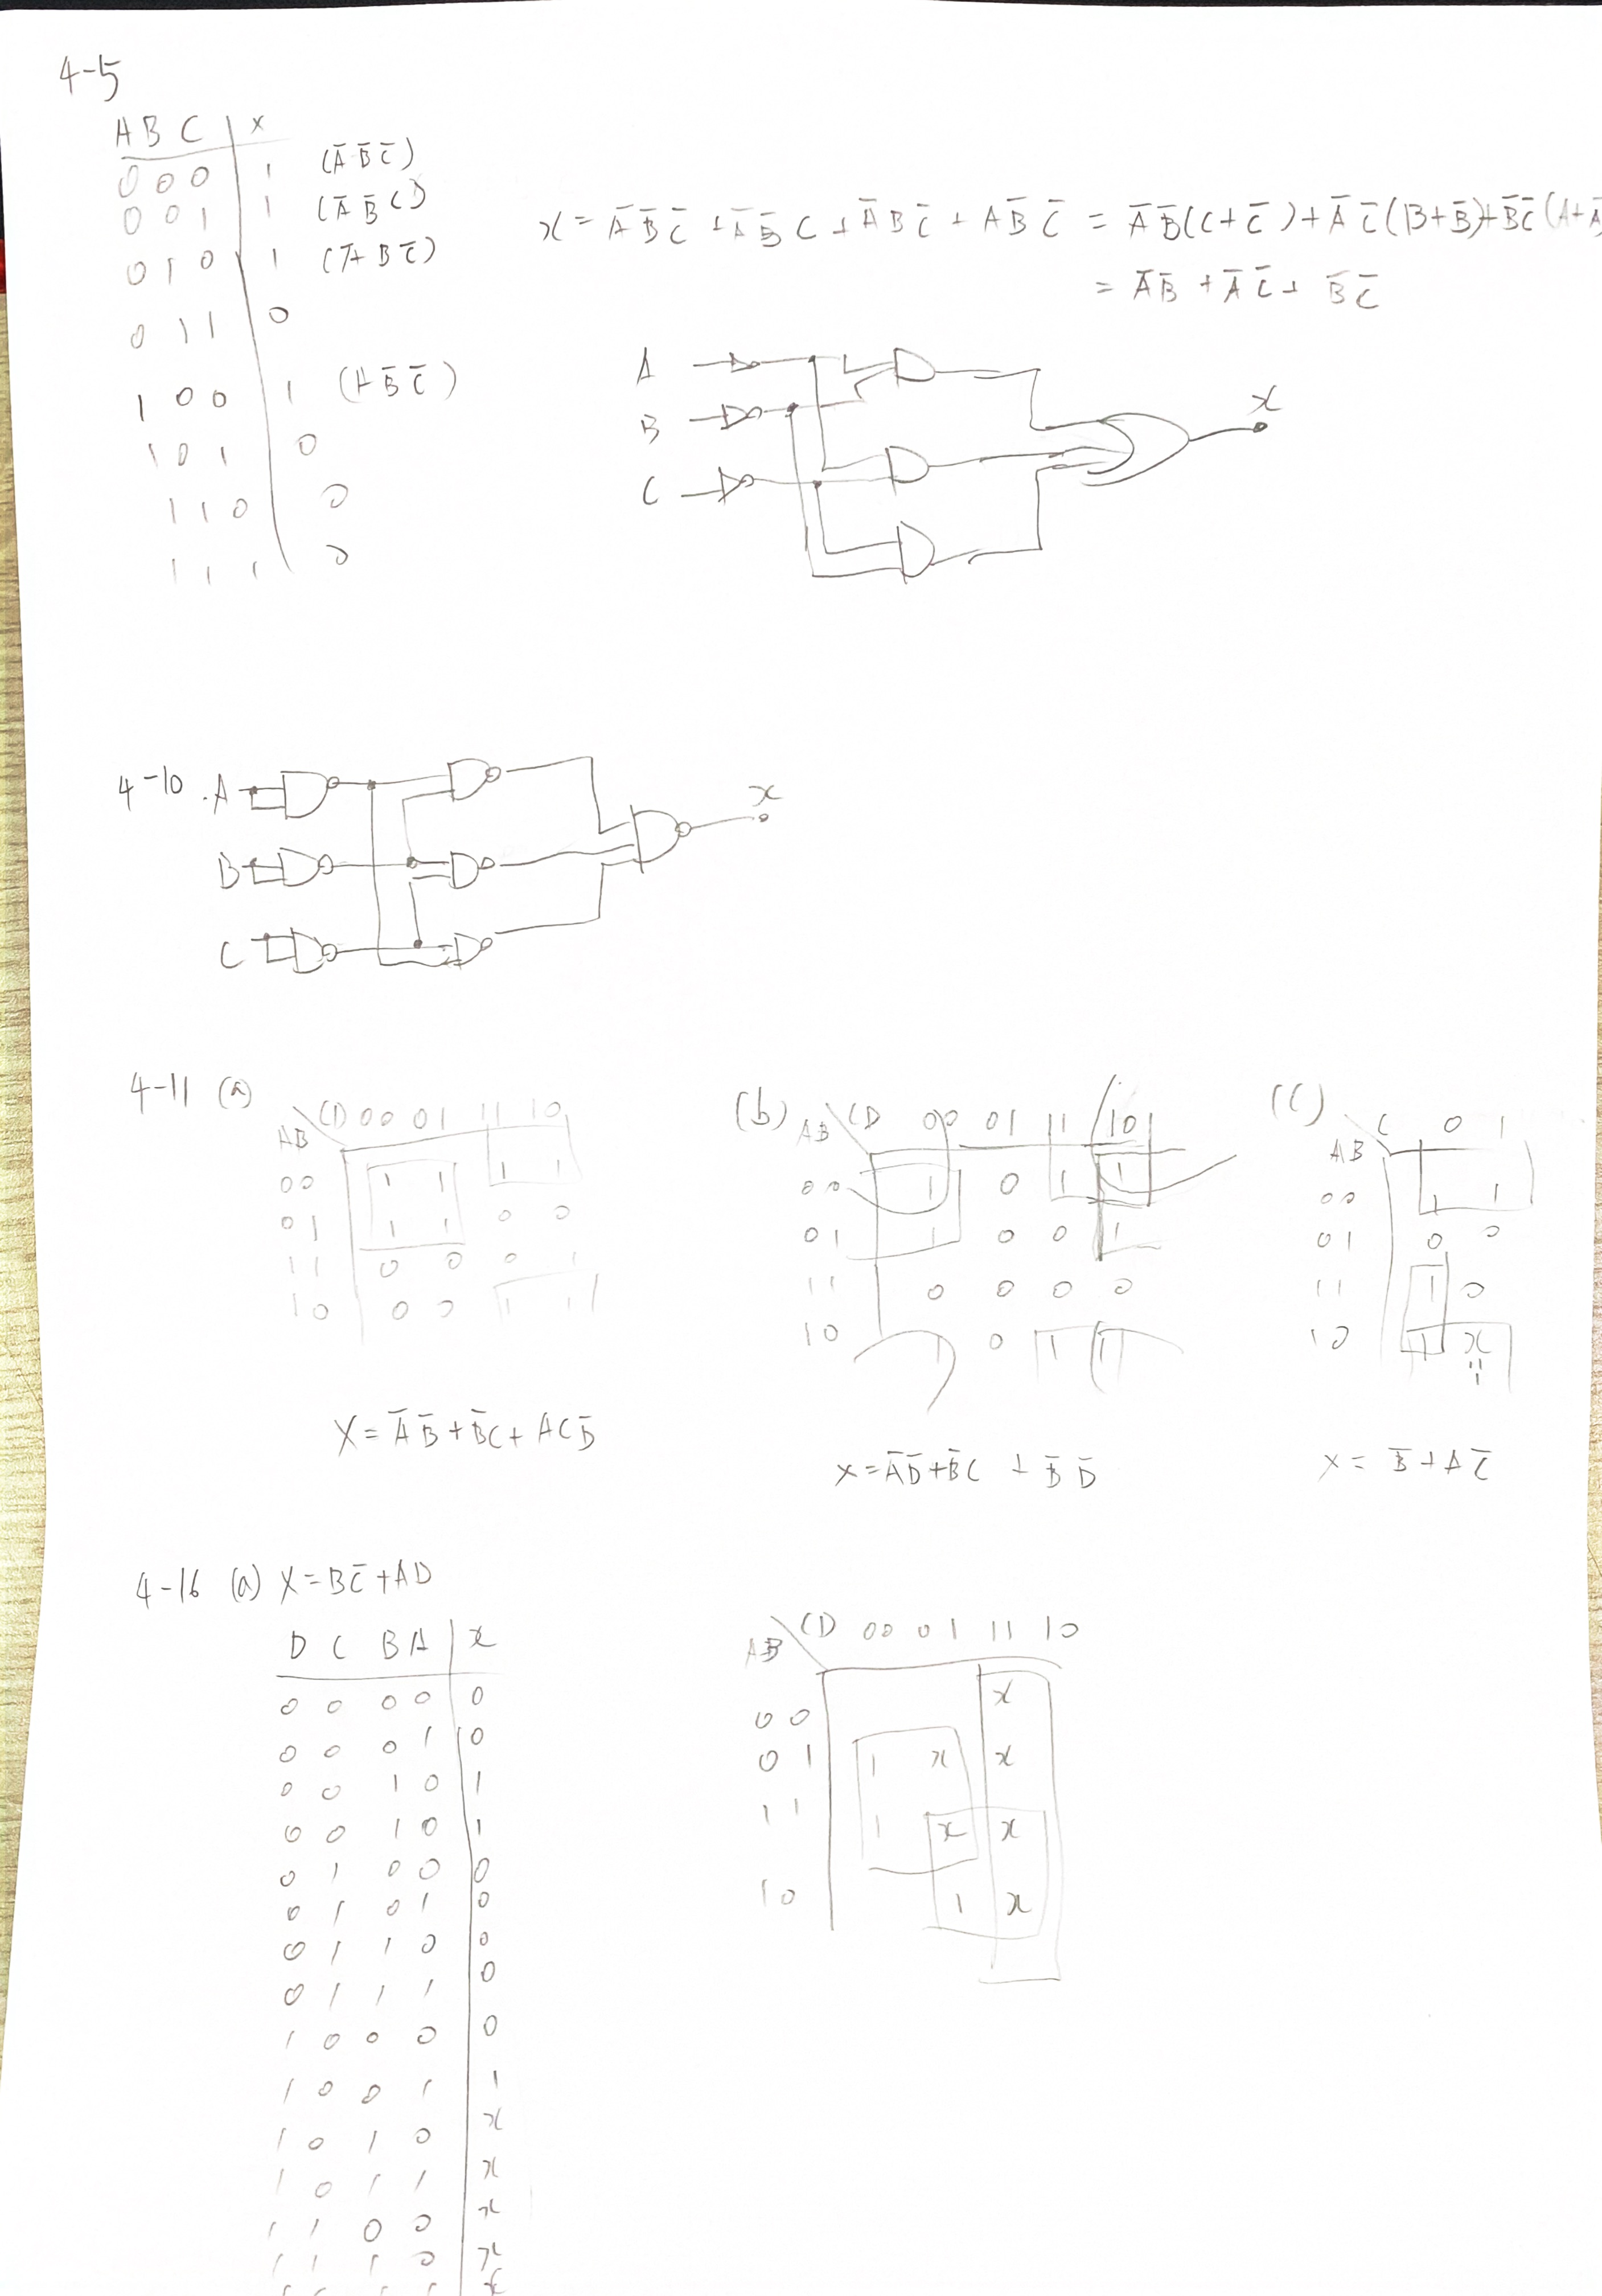 4-5
A B C | x
0 0 0 | 1 (A̅ B̅ C̅)
0 0 1 | 1 (A̅ B̅ C)
0 1 0 | 1 (A̅ B C̅)
0 1 1 | 0
1 0 0 | 1 (A B̅ C̅)
1 0 1 | 0
1 1 0 | 0
1 1 1 | 0
x = A̅ B̅ C̅ + A̅ B̅ C + A̅ B C̅ + A B̅ C̅ = A̅ B̅ (C + C̅) + A̅ C̅ (B + B̅) + B̅ C̅ (A + A̅
= A̅ B̅ + A̅ C̅ + B̅ C̅
A
B
C
x
4-10
A
B
C
x
4-11 (a)
AB CD 00 01 11 10
00 1 1 1 1
01 1 1 0 0
11 0 0 0 1
10 0 0 1 1
X = A̅ B̅ + B̅ C + A C D̅
(b)
AB CD 00 01 11 10
00 1 0 1 1
01 1 0 0 1
11 0 0 0 0
10 1 0 1 1
x = A̅ D̅ + B̅ C + B̅ D̅
(C)
AB C 0 1
00 1 1
01 0 0
11 1 0
10 1 x
=
1
x = B̅ + A C̅
4-16 (a) X = B C̅ + A D
D C B A | x
0 0 0 0 | 0
0 0 0 1 | 0
0 0 1 0 | 1
0 0 1 0 | 1
0 1 0 0 | 0
0 1 0 1 | 0
0 1 1 0 | 0
0 1 1 1 | 0
1 0 0 0 | 0
1 0 0 1 | 1
1 0 1 0 | x
1 0 1 1 | x
1 1 0 0 | x
1 1 1 0 | x
AB CD 00 01 11 10
00 x
01 1 x x
11 1 x x
10 1 x